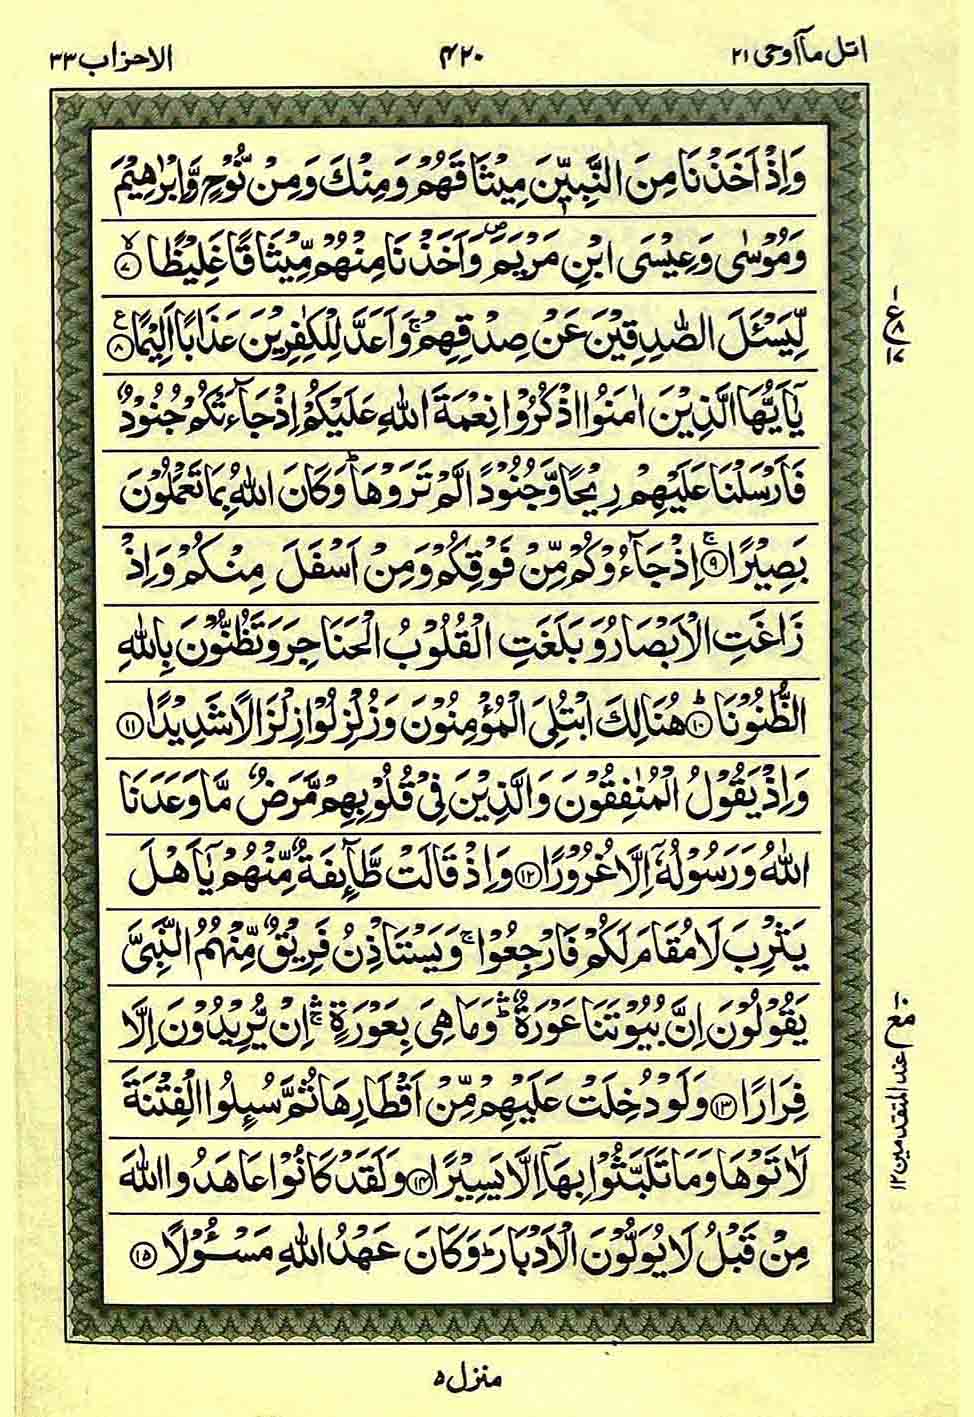 اتل مآاوحی ۲۱
۴۲۰
الاحزاب ۳۳
وَاِذْ اَخَذْنَا مِنَ النَّبِيّٖنَ مِيْثَاقَهُمْ وَمِنْكَ وَمِنْ نُّوْحٍ وَّاِبْرٰهِيْمَ
وَمُوْسٰى وَعِيْسَى ابْنِ مَرْيَمَ ۪ وَاَخَذْنَا مِنْهُمْ مِّيْثَاقًا غَلِيْظًا ۙ۷
لِّيَسْـَٔلَ الصّٰدِقِيْنَ عَنْ صِدْقِهِمْ ۚ وَاَعَدَّ لِلْكٰفِرِيْنَ عَذَابًا اَلِيْمًا ۸ ع
يٰۤاَيُّهَا الَّذِيْنَ اٰمَنُوا اذْكُرُوْا نِعْمَةَ اللّٰهِ عَلَيْكُمْ اِذْ جَآءَتْكُمْ جُنُوْدٌ
فَاَرْسَلْنَا عَلَيْهِمْ رِيْحًا وَّجُنُوْدًا لَّمْ تَرَوْهَا ؕ وَكَانَ اللّٰهُ بِمَا تَعْمَلُوْنَ
بَصِيْرًا ۚ۹ اِذْ جَآءُوْكُمْ مِّنْ فَوْقِكُمْ وَمِنْ اَسْفَلَ مِنْكُمْ وَاِذْ
زَاغَتِ الْاَبْصَارُ وَبَلَغَتِ الْقُلُوْبُ الْحَنَاجِرَ وَتَظُنُّوْنَ بِاللّٰهِ
الظُّنُوْنَا ؕ۱۰ هُنَالِكَ ابْتُلِيَ الْمُؤْمِنُوْنَ وَزُلْزِلُوْا زِلْزَالًا شَدِيْدًا ۱۱
وَاِذْ يَقُوْلُ الْمُنٰفِقُوْنَ وَالَّذِيْنَ فِيْ قُلُوْبِهِمْ مَّرَضٌ مَّا وَعَدَنَا
اللّٰهُ وَرَسُوْلُهٗۤ اِلَّا غُرُوْرًا ۱۲ وَاِذْ قَالَتْ طَّآئِفَةٌ مِّنْهُمْ يٰۤاَهْلَ
يَثْرِبَ لَا مُقَامَ لَكُمْ فَارْجِعُوْا ۚ وَيَسْتَاْذِنُ فَرِيْقٌ مِّنْهُمُ النَّبِيَّ
يَقُوْلُوْنَ اِنَّ بُيُوْتَنَا عَوْرَةٌ ۛؕ وَمَا هِيَ بِعَوْرَةٍ ۛۚ اِنْ يُّرِيْدُوْنَ اِلَّا
فِرَارًا ۱۳ وَلَوْ دُخِلَتْ عَلَيْهِمْ مِّنْ اَقْطَارِهَا ثُمَّ سُىِٕلُوا الْفِتْنَةَ
لَاٰتَوْهَا وَمَا تَلَبَّثُوْا بِهَاۤ اِلَّا يَسِيْرًا ۱۴ وَلَقَدْ كَانُوْا عَاهَدُوا اللّٰهَ
مِنْ قَبْلُ لَا يُوَلُّوْنَ الْاَدْبَارَ ؕ وَكَانَ عَهْدُ اللّٰهِ مَسْـُٔوْلًا ۱۵
ع ۸ ۱۷
مع عند المتقدمین ۱۲
منزل ۵